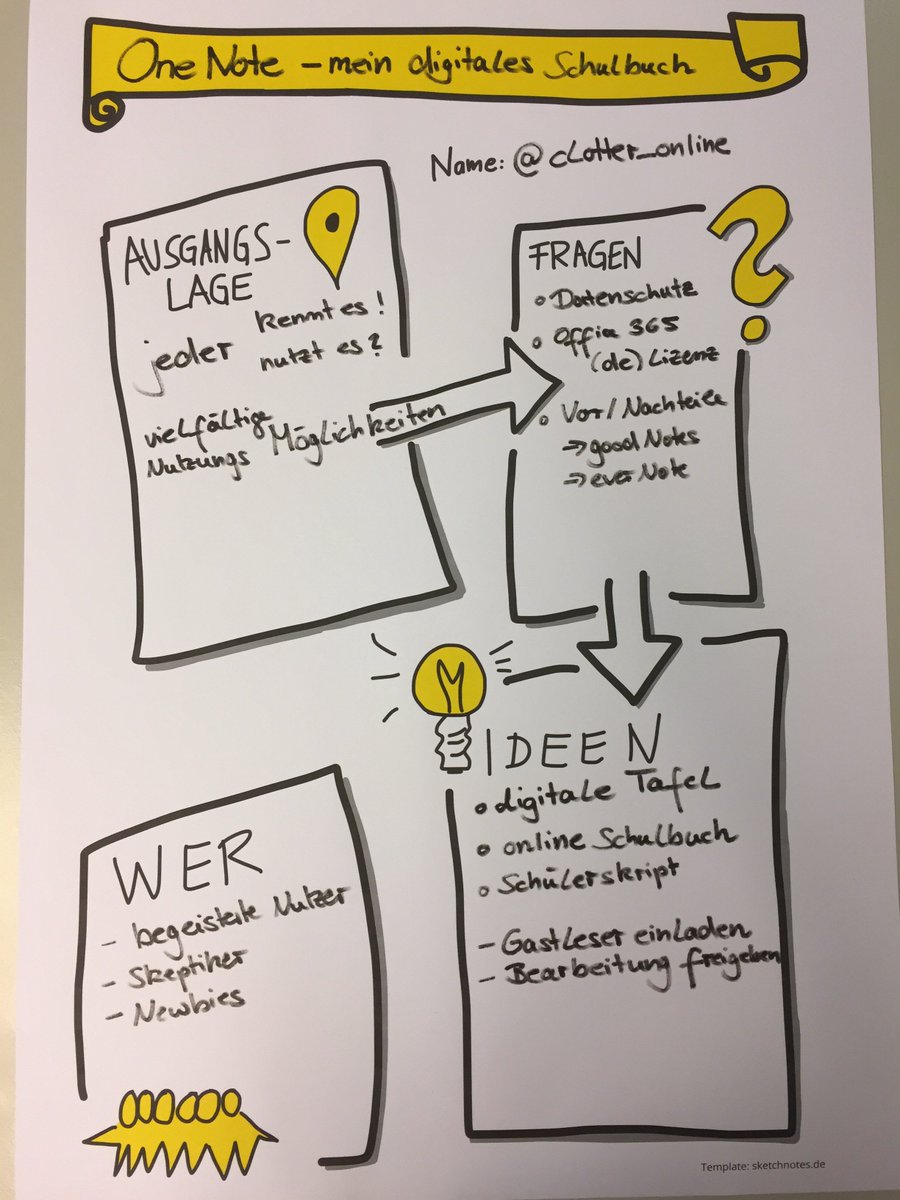 One Note – mein digitales Schulbuch
Name: @cLotter_online
AUSGANGS-
LAGE
jeder kennt es!
nutzt es?
vielfältige
Nutzungs Möglichkeiten
FRAGEN
• Datenschutz
• Office 365
(de) Lizenz
• Vor/Nachteile
→ good Notes
→ ever Note
IDEEN
• digitale Tafel
• online Schulbuch
• Schülerskript
– Gastleser einladen
– Bearbeitung freigeben
WER
– begeisterte Nutzer
– Skeptiker
– Newbies
Template: sketchnotes.de